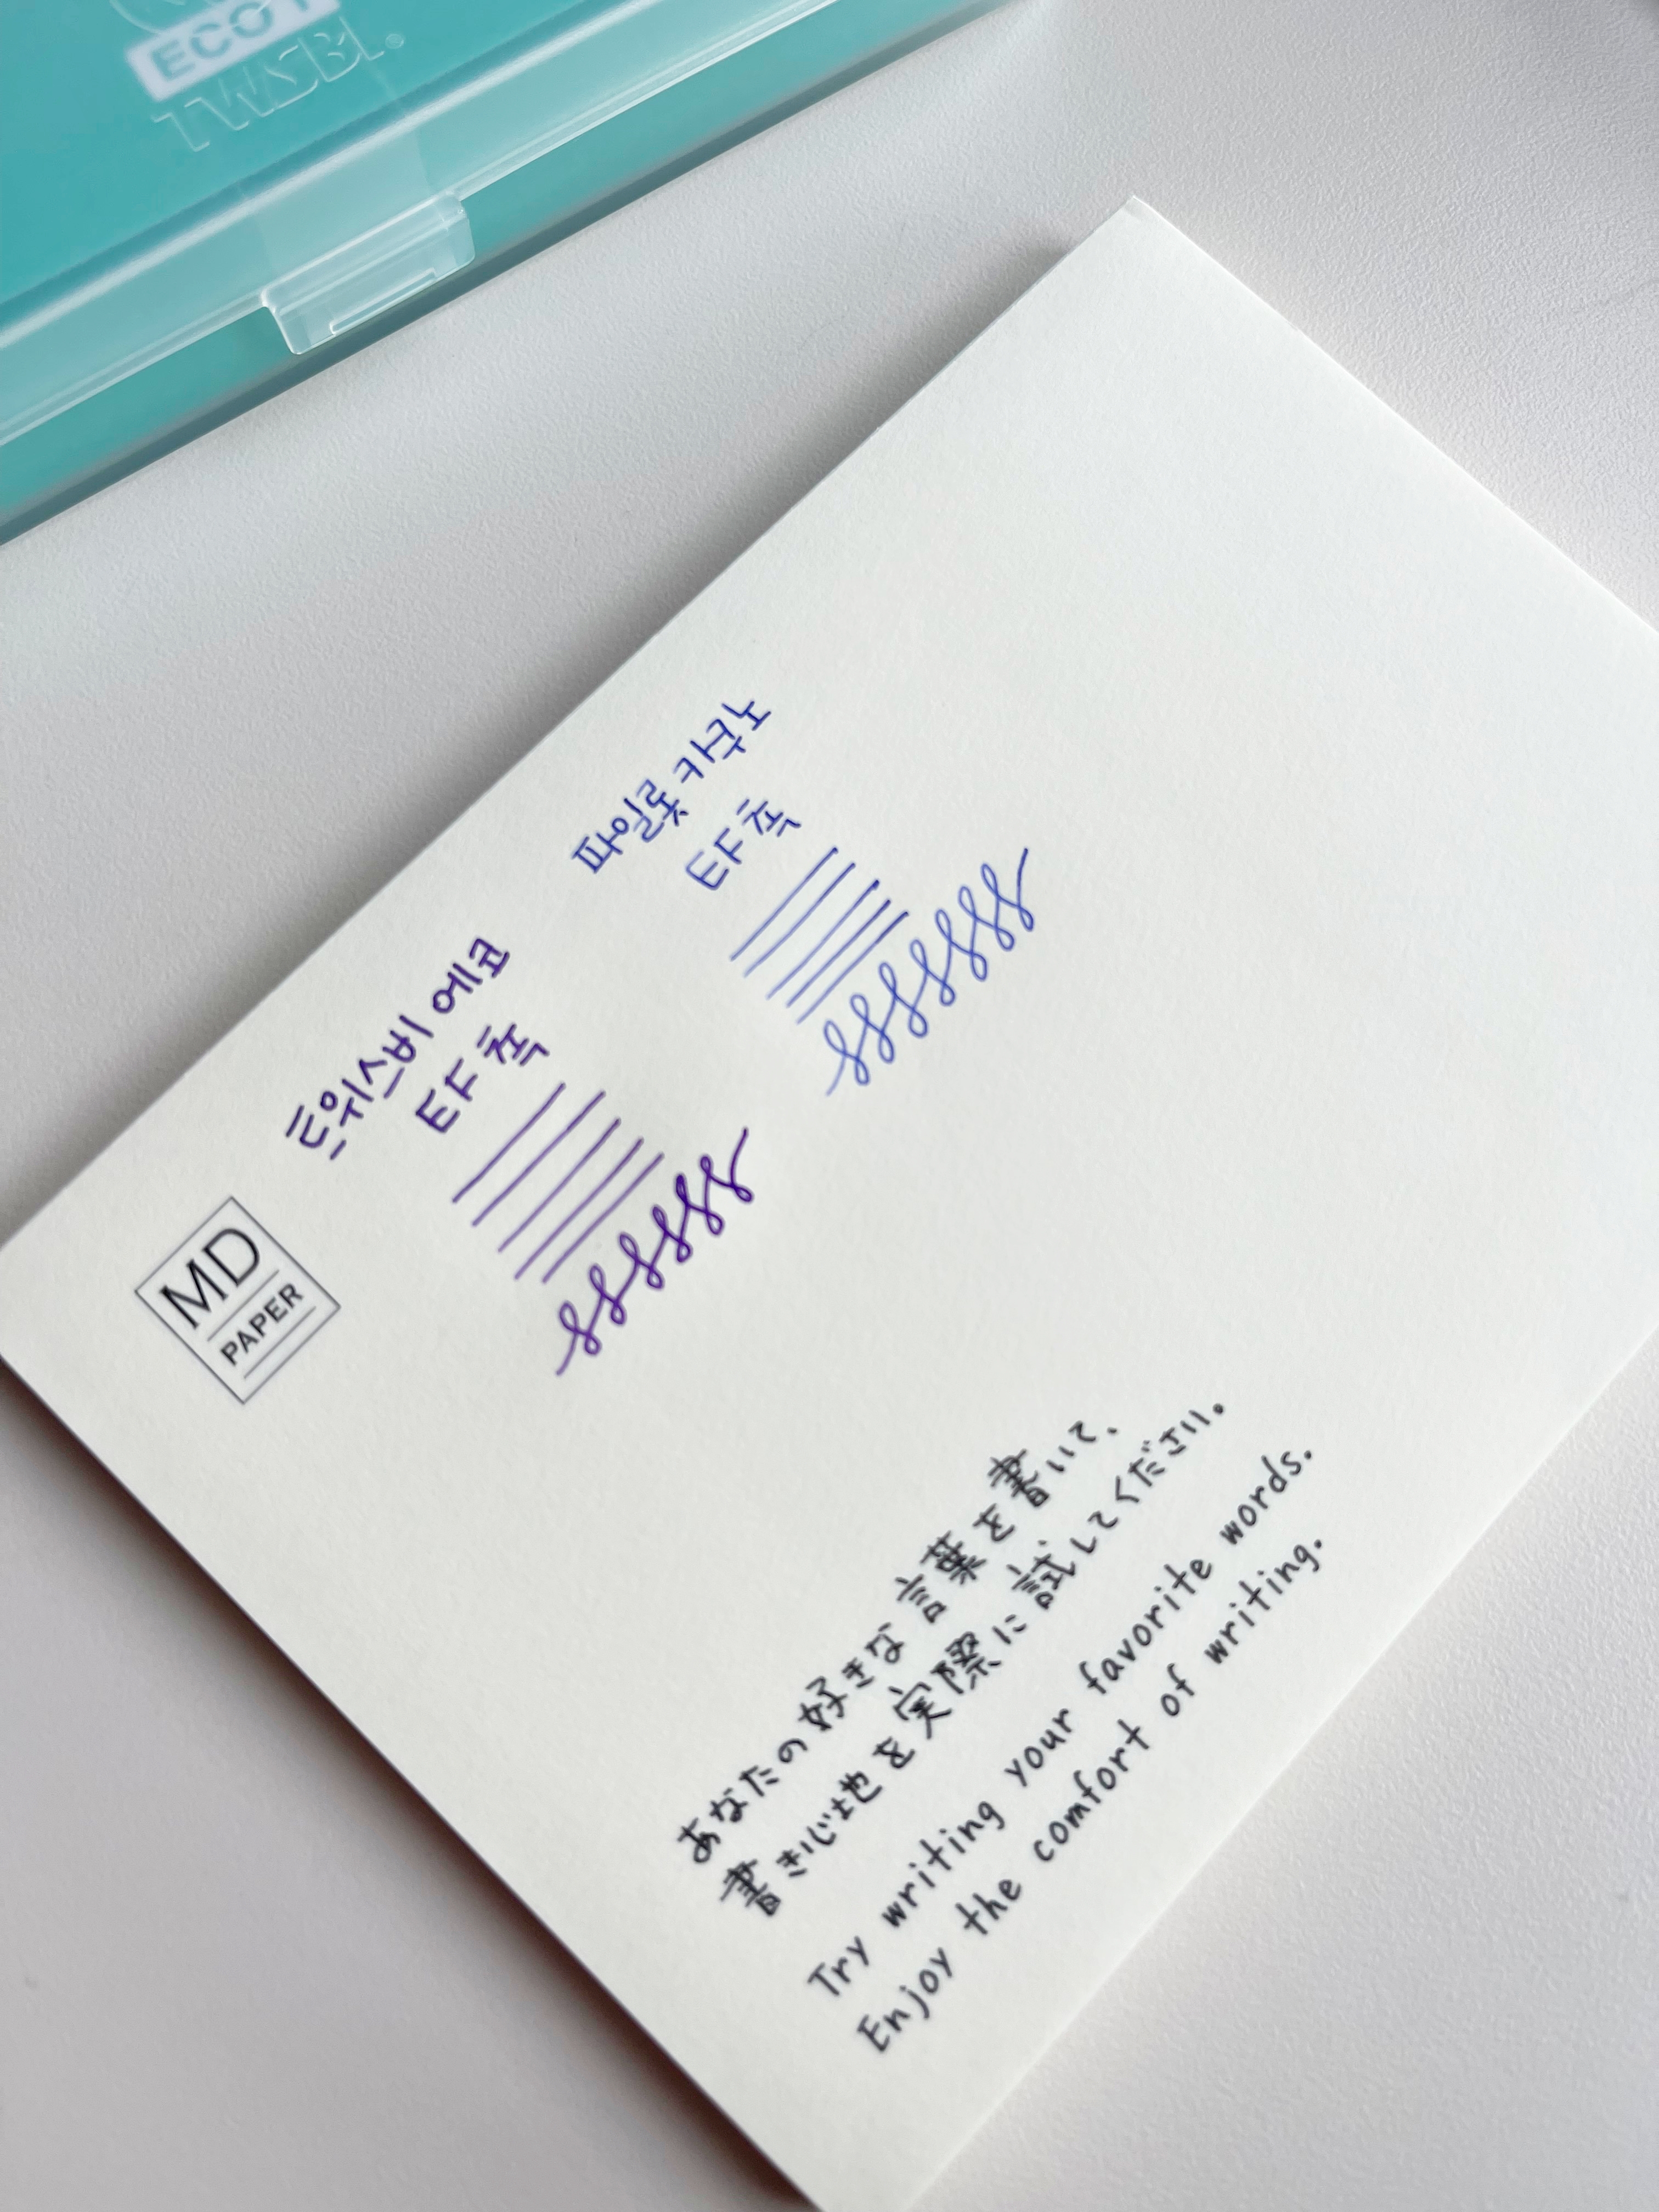 ECO T
TWSBI®
트위스비 에코
EF 촉
파일롯 카쿠노
EF 촉
MD
PAPER
あなたの好きな言葉を書いて、
書き心地を実際に試してください。
Try writing your favorite words.
Enjoy the comfort of writing.